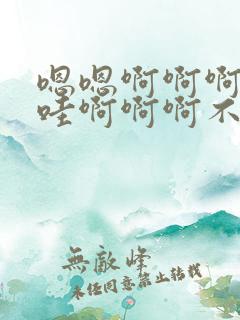 嗯嗯啊啊啊
哇啊啊啊不
無敵峰
未经同意禁止转载